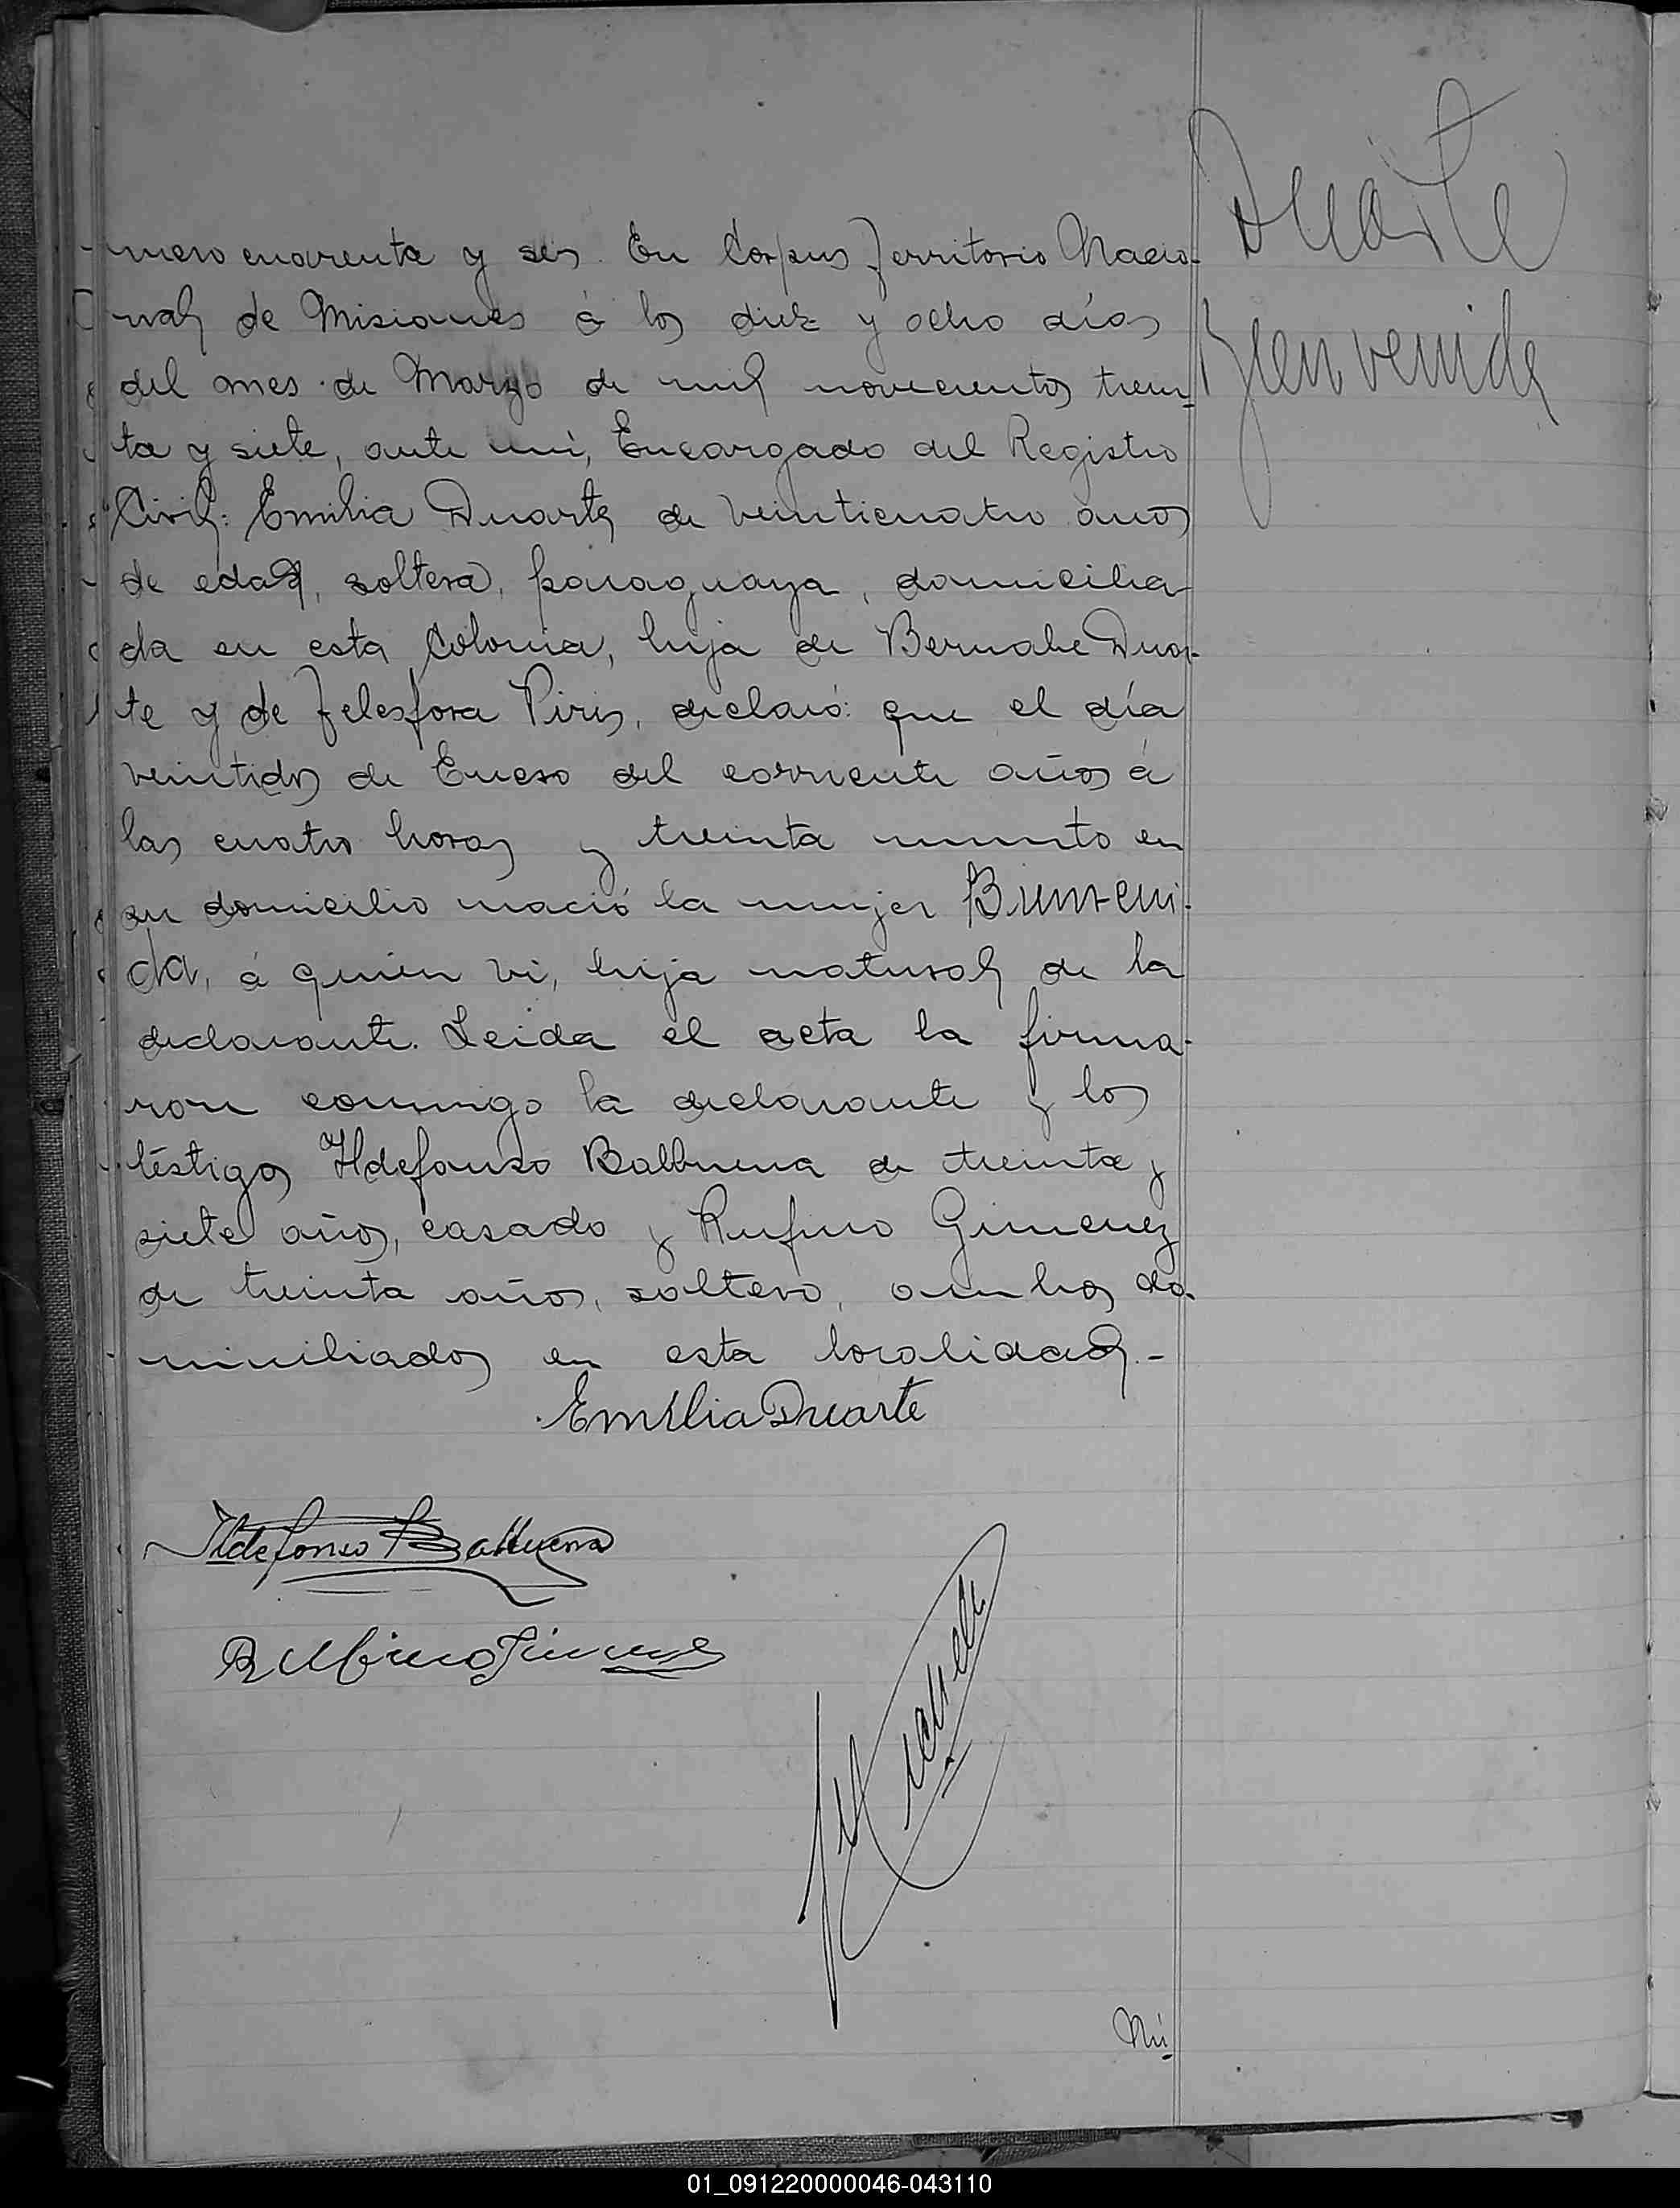 Duarte
Bienvenida
mero cuarenta y seis. En Corpus Territorio Nacio-
nal de Misiones á los diez y ocho días
del mes de Marzo de mil novecientos trein-
ta y siete, ante mí, Encargado del Registro
Civil: Emilia Duarte de veinticuatro años
de edad, soltera, paraguaya, domicilia-
da en esta Colonia, hija de Bernabe Duar-
te y de Telesfora Piris, declaró: que el día
veintidos de Enero del corriente años á
las cuatro horas y treinta minuto en
su domicilio nació la mujer Bienveni-
da, á quien vi, hija natural de la
declarante. Leida el acta la firma-
ron conmigo la declarante y los
testigos Ildefonso Balbuena de treinta y
siete años, casado y Rufino Gimenez
de treinta años, soltero, ambos do-
miciliados en esta localidad.-
Emilia Duarte
Ildefonso Balbuena
Rufino Jimenez
Nú-
01_091220000046-043110